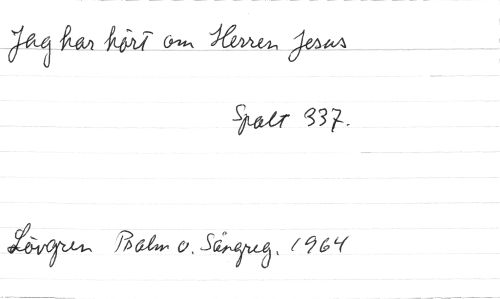 Jag har hört om Herren Jesus
Spalt 337.
Lövgren Psalm o. Sångreg. 1964